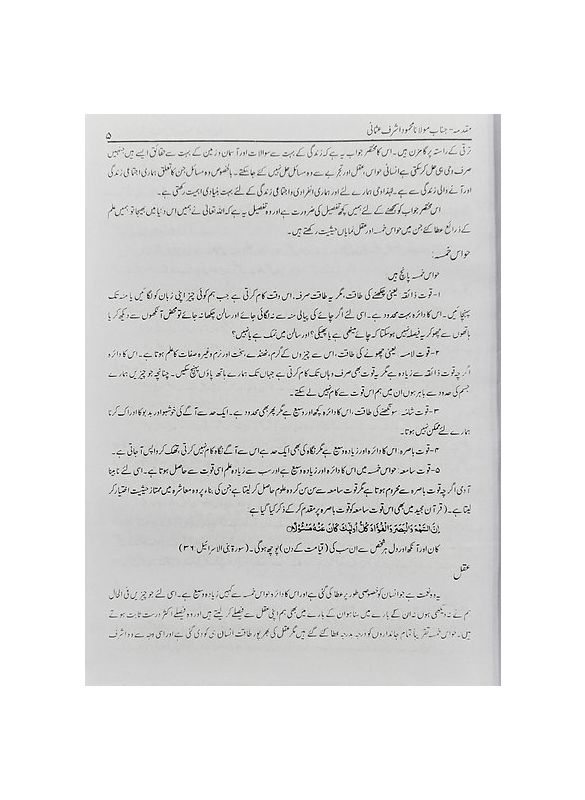 مقدمہ - جناب مولانا محمود اشرف عثمانی ۵
ترقی کے راستہ پر گامزن ہیں۔ اس کا مختصر جواب یہ ہے کہ زندگی کے بہت سے سوالات اور آسمان و زمین کے بہت سے حقائق ایسے ہیں جنہیں
صرف وحی ہی حل کر سکتی ہے انسانی حواس، عقل اور تجربے سے وہ مسائل حل نہیں کئے جا سکتے۔ بالخصوص وہ مسائل جن کا تعلق ہماری اجتماعی زندگی
اور آنے والی زندگی سے ہے۔ لہٰذا وحی ہمارے لئے اور ہماری انفرادی و اجتماعی زندگی کے لئے بہت بنیادی اہمیت رکھتی ہے۔
اس مختصر جواب کو سمجھنے کے لئے ہمیں کچھ تفصیل کی ضرورت ہے اور وہ تفصیل یہ ہے کہ اللہ تعالیٰ نے ہمیں اس دنیا میں بھیجا تو ہمیں علم
کے ذرائع عطا کئے جن میں حواس خمسہ اور عقل نمایاں حیثیت رکھتے ہیں۔
حواس خمسہ:
حواس خمسہ پانچ ہیں:
۱- قوت ذائقہ: یعنی چکھنے کی طاقت، مگر یہ طاقت صرف، اس وقت کام کرتی ہے جب ہم کوئی چیز اپنی زبان کو لگائیں یا منہ تک
پہنچائیں۔ اس کا دائرہ بہت محدود ہے۔ اسی لئے اگر چائے کی پیالی منہ سے نہ لگائی جائے اور سالن چکھا نہ جائے تو محض آنکھوں سے دیکھ کر یا
ہاتھوں سے چھو کر یہ فیصلہ نہیں ہو سکتا کہ چائے میٹھی ہے یا پھیکی؟ اور سالن میں نمک ہے یا نہیں؟
۲- قوت لامسہ: یعنی چھونے کی طاقت، اس سے چیزوں کے گرم، ٹھنڈے، سخت اور نرم وغیرہ صفات کا علم ہوتا ہے۔ اس کا دائرہ
اگرچہ قوت ذائقہ سے زیادہ ہے مگر یہ قوت بھی صرف وہاں تک کام کرتی ہے جہاں تک ہمارے ہاتھ پاؤں پہنچ سکیں۔ چنانچہ جو چیزیں ہمارے
جسم کی حدود سے باہر ہوں ان میں ہم اس قوت سے کام نہیں لے سکتے۔
۳- قوت شامہ: سونگھنے کی طاقت، اس کا دائرہ کچھ اور وسیع ہے مگر پھر بھی محدود ہے۔ ایک حد سے آگے کی خوشبو اور بدبو کا ادراک کرنا
ہمارے لئے ممکن نہیں ہوتا۔
۴- قوت باصرہ: اس کا دائرہ اور زیادہ وسیع ہے مگر نگاہ کی بھی ایک حد ہے اس سے آگے نگاہ کام نہیں کرتی، تھک کر واپس آ جاتی ہے۔
۵- قوت سامعہ: حواس خمسہ میں اس کا دائرہ اور زیادہ وسیع ہے اور سب سے زیادہ علم اسی قوت سے حاصل ہوتا ہے۔ اسی لئے نابینا
آدمی اگرچہ قوت باصرہ سے محروم ہوتا ہے مگر قوت سامعہ سے سن سن کر وہ علوم حاصل کر لیتا ہے جن کی بناء پر وہ معاشرہ میں ممتاز حیثیت اختیار کر
لیتا ہے۔ (قرآن مجید میں بھی اس قوت سامعہ کو قوت باصرہ پر مقدم کر کے ذکر کیا گیا ہے:
اِنَّ السَّمْعَ وَالْبَصَرَ وَالْفُؤَادَ كُلُّ اُولٰٓئِكَ كَانَ عَنْهُ مَسْئُوْلًا
کان اور آنکھ اور دل ہر شخص سے ان سب کی (قیامت کے دن) پوچھ ہوگی۔ (سورۃ بنی اسرائیل ۳۶)
عقل
یہ وہ نعمت ہے جو انسان کو خصوصی طور پر عطا کی گئی ہے اور اس کا دائرہ حواس خمسہ سے کہیں زیادہ وسیع ہے۔ اسی لئے جو چیزیں فی الحال
ہم نے نہ دیکھی ہوں نہ ان کے بارے میں سنا ہو ان کے بارے میں بھی ہم اپنی عقل سے فیصلے کر لیتے ہیں اور وہ فیصلے اکثر درست ثابت ہوتے
ہیں۔ حواس خمسہ تقریباً تمام جانداروں کو درجہ بدرجہ عطا کئے گئے ہیں مگر عقل کی بھرپور طاقت انسان ہی کو دی گئی ہے اور اسی وجہ سے وہ اشرف